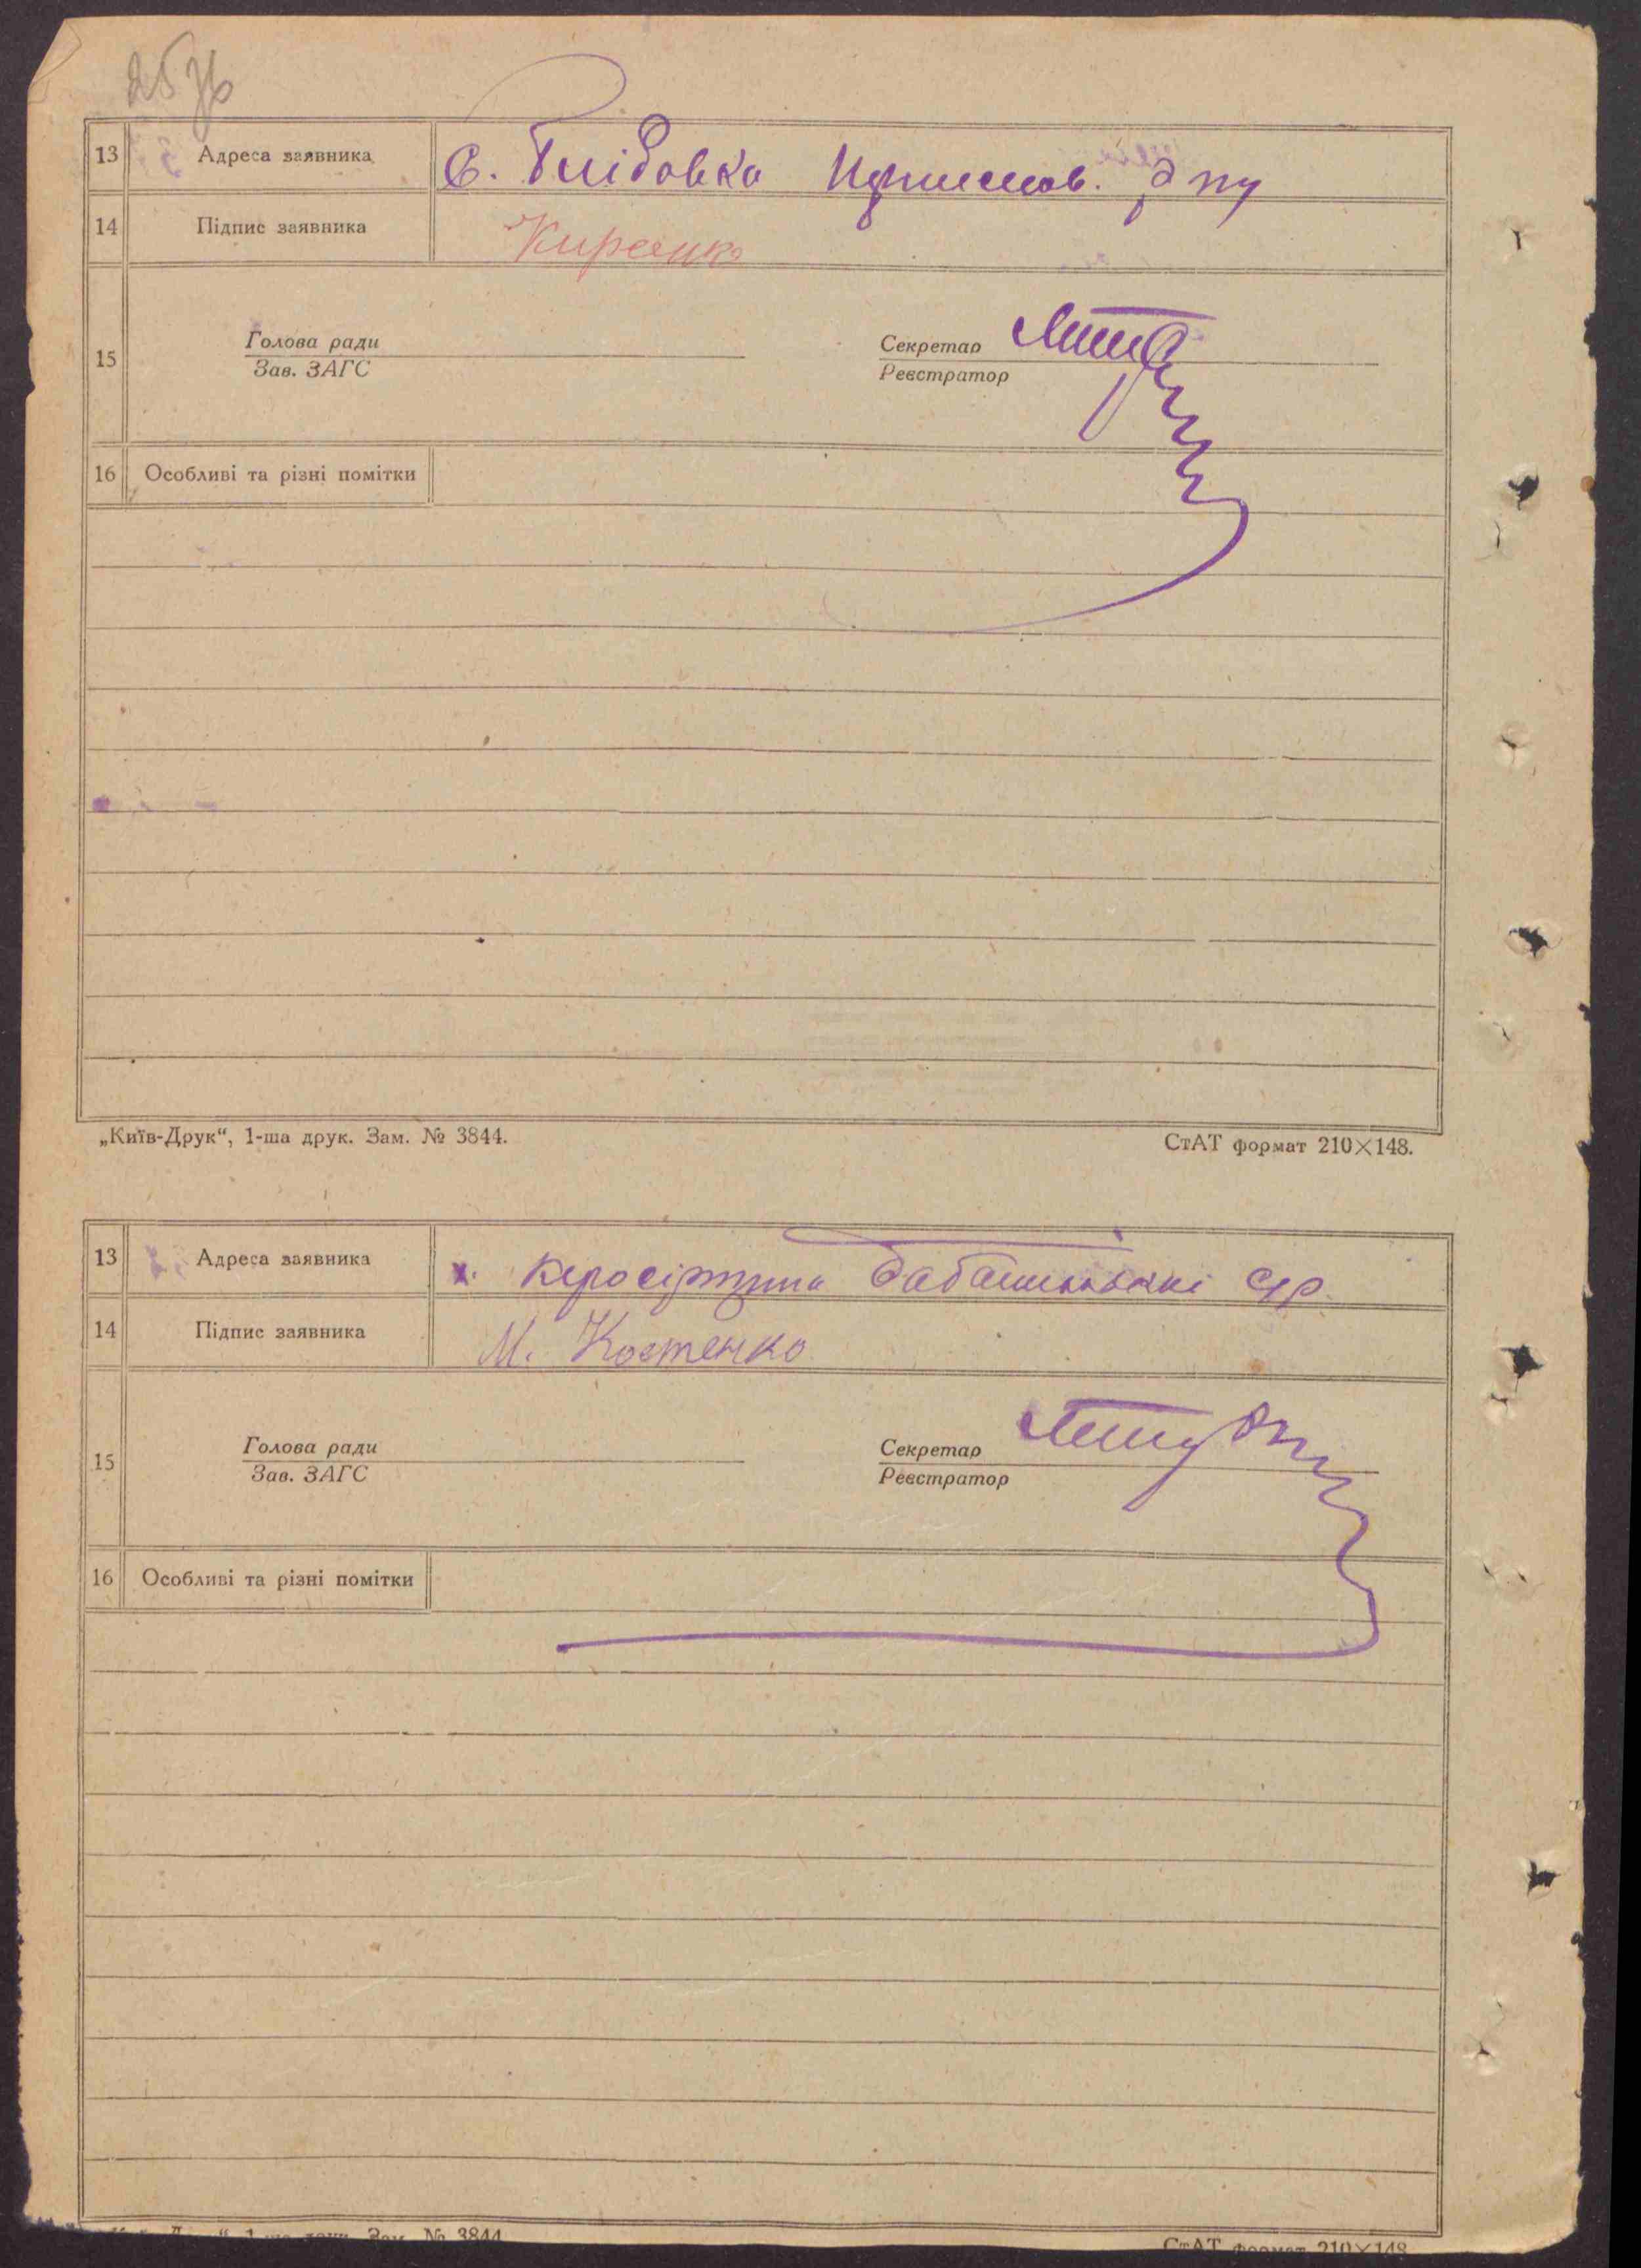 13 Адреса заявника с.
14 Підпис заявника Киреенко
15 Голова ради Секретар
Зав. ЗАГС Реєстратор
16 Особливі та різні помітки
„Київ-Друк“, 1-ша друк. Зам. № 3844. СтАТ формат 210×148.
13 Адреса заявника х.
14 Підпис заявника М. Костенко
15 Голова ради Секретар
Зав. ЗАГС Реєстратор
16 Особливі та різні помітки
1-ша друк. Зам. № 3844 СтАТ формат 210×148